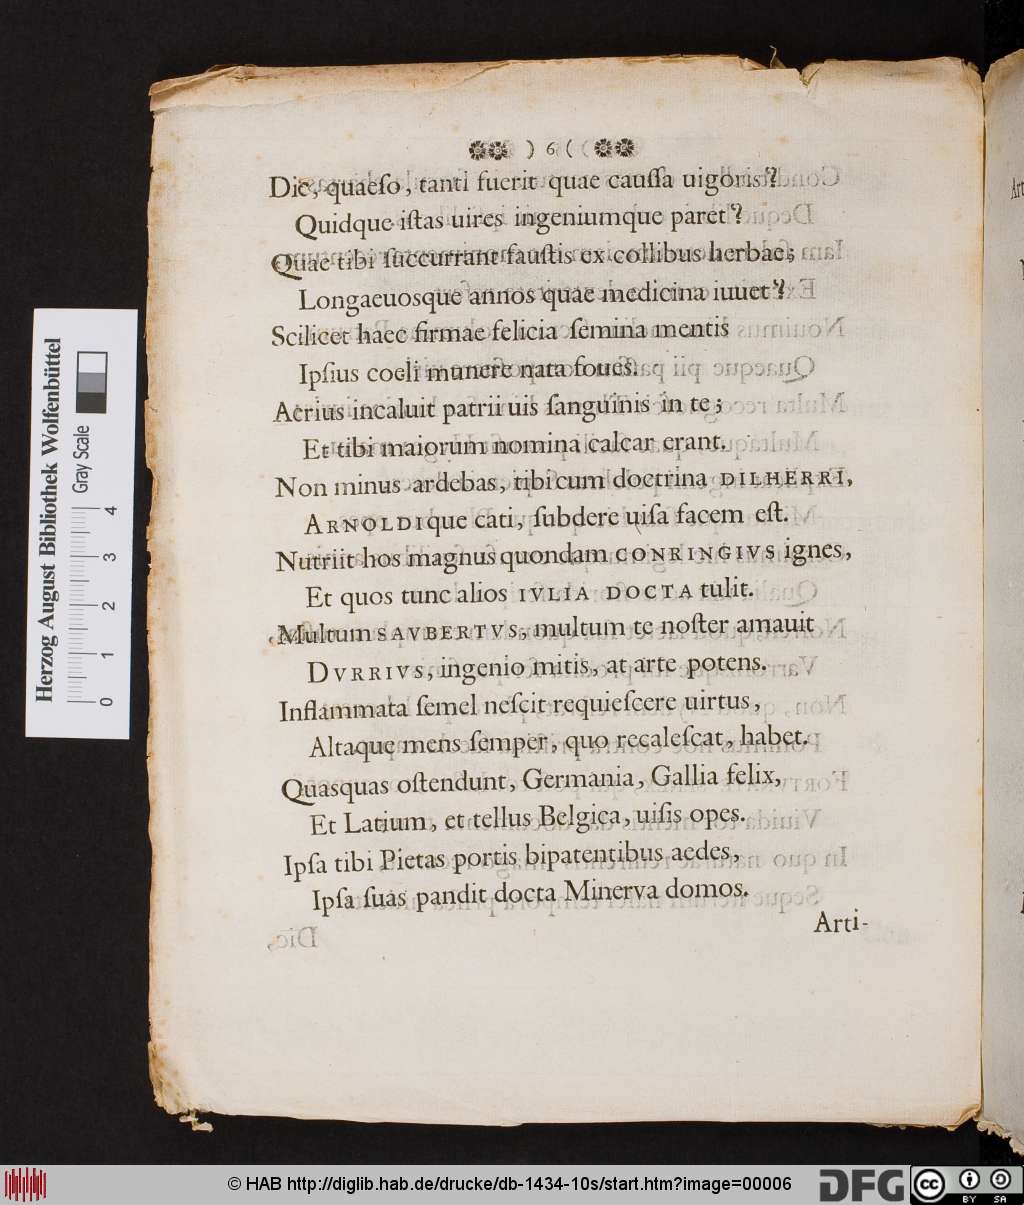 ) 6 (
Dic, quaeſo, tanti fuerit quae cauſſa uigoris?
Quidque iſtas uires ingeniumque paret?
Quae tibi ſuccurrant fauſtis ex collibus herbae;
Longaeuosque annos quae medicina iuuet?
Scilicet haec firmae felicia ſemina mentis
Ipſius coeli munere nata foues.
Acrius incaluit patrii uis ſanguinis in te;
Et tibi maiorum nomina calcar erant.
Non minus ardebas, tibi cum doctrina DILHERRI,
ARNOLDIque cati, ſubdere uiſa facem eſt.
Nutriit hos magnus quondam CONRINGIVS ignes,
Et quos tunc alios IVLIA DOCTA tulit.
Multum SAVBERTVS, multum te noſter amauit
DVRRIVS, ingenio mitis, at arte potens.
Inflammata ſemel neſcit requieſcere uirtus,
Altaque mens ſemper, quo recaleſcat, habet.
Quasquas oſtendunt, Germania, Gallia felix,
Et Latium, et tellus Belgica, uiſis opes.
Ipſa tibi Pietas portis bipatentibus aedes,
Ipſa ſuas pandit docta Minerva domos.
Arti-
Herzog August Bibliothek Wolfenbüttel
Gray Scale
0 1 2 3 4
© HAB http://diglib.hab.de/drucke/db-1434-10s/start.htm?image=00006
DFG
cc
BY SA